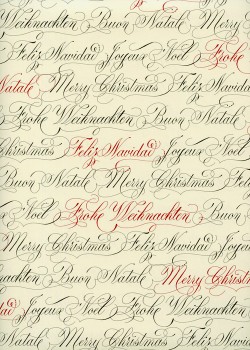 Weihnachten Buon Natale
Feliz Navidad Joyeux Noël Frohe
Natale Merry Christmas Feliz Navidad
Frohe Weihnachten Buon Natale
Feliz Navidad Joyeux Noël
Buon Natale Merry Christmas
Noël Frohe Weihnachten Buon
Merry Christmas Feliz Navidad
Weihnachten Buon Natale Merry Christ
Joyeux Noël Frohe Weihnachten
Buon Natale Merry Christmas